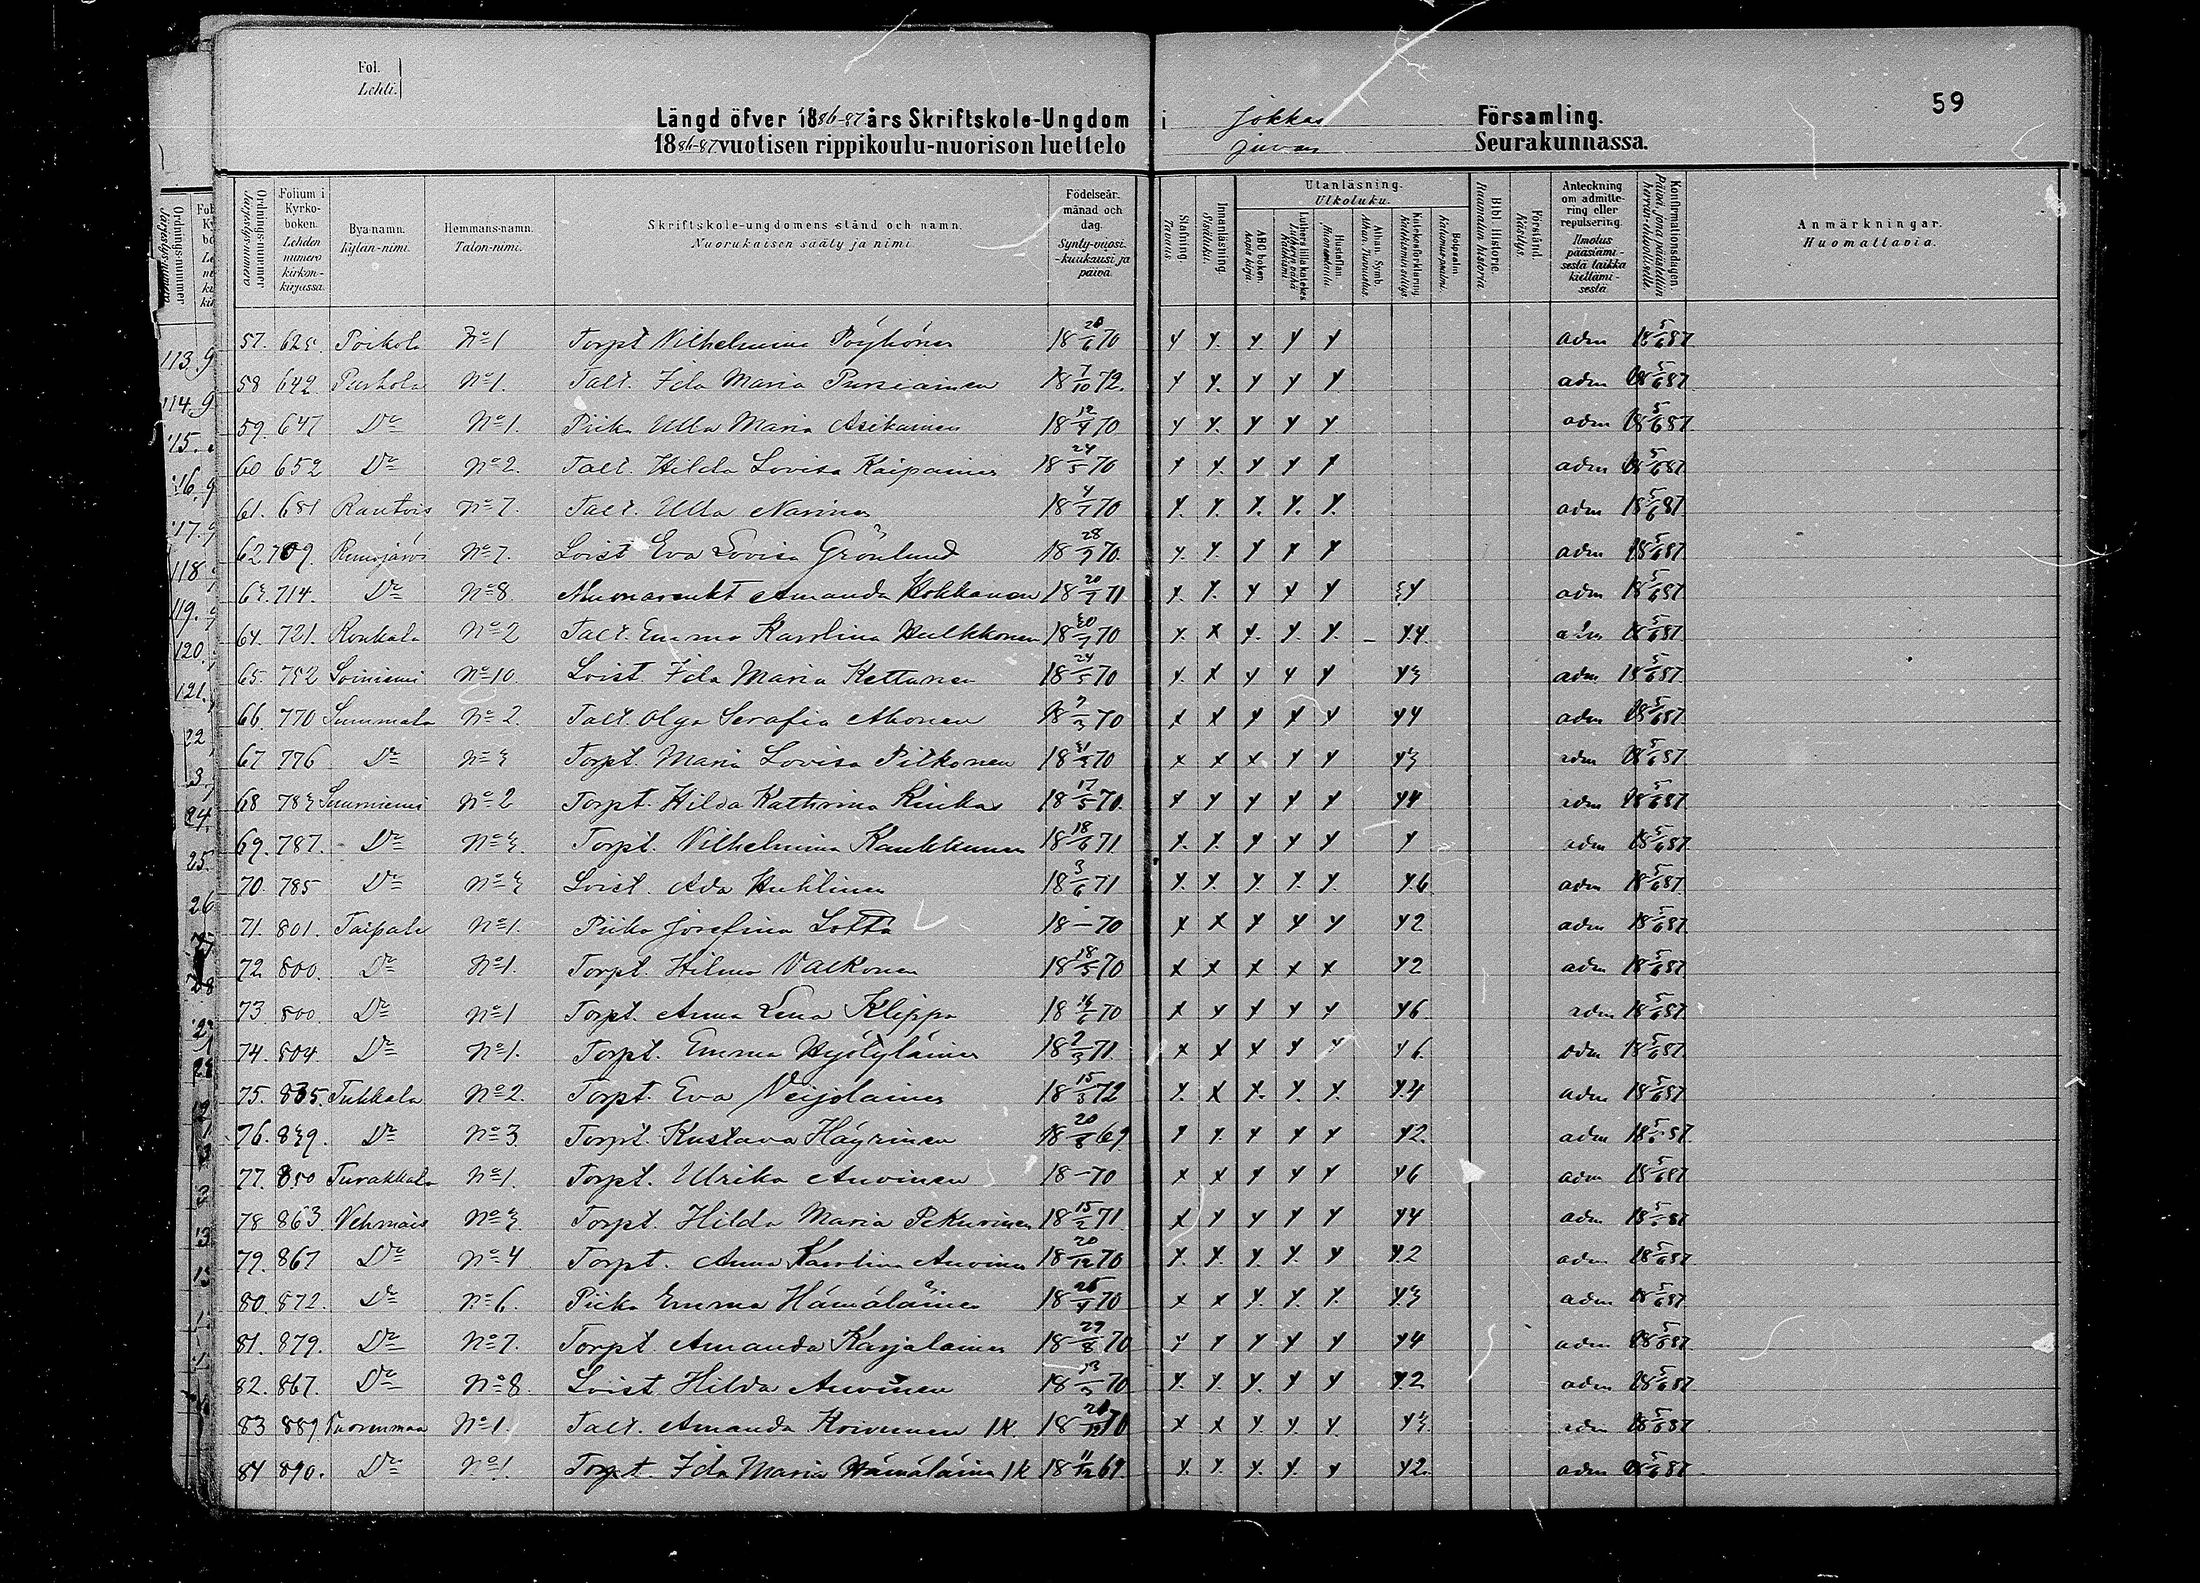 59
Fol.
Lehti.
Längd öfver 1886-87 års Skriftskole-Ungdom i Jokkas Församling.
1886-87 vuotisen rippikoulu-nuorison luettelo Juvan Seurakunnassa.
Ordnings-numer Järjestysnumero
Folium i Kyrko-boken. Lehden numero kirkon-kirjassa.
Bya-namn. Kylän-nimi.
Hemmans-namn. Talon-nimi.
Skriftskole-ungdomens stånd och namn. Nuorukaisen sääty ja nimi.
Födelseår. månad och dag. Synty-vuosi. -kuukausi ja päivä.
Stafning Tavaus
Innanläsning. Sisäluku.
Utanläsning. Ulkoluku.
ABC boken. Aapis kirja.
Luthers lilla katekes Lutherin vähä Katkismus
Hustaflan Huoneentaulu.
Athan. Symb. Athan. Tunnustus.
Katekesförklaring Katkismuksen selitys.
Botpsalm. Katumus-psalmi.
Bibl. Historie. Raamatun historia.
Förstånd Käsitys.
Anteckning om admitte-ring eller repulsering. Ilmoitus pääsiämi-sestä taikka kieltämi-sestä
Konfirmationsdagen. Päivä, jona päästettiin herran ehtoolliselle.
Anmärkningar. Huomattavia.
57. 625. Poikola No 1 Torpt Vilhelmina Pöyhönen 18 28/6 70 adm 18 5/6 87
58 642. Purhola No 1. Talt. Ida Maria Pursiainen 18 7/10 72. adm 18 5/6 87
59. 647 Do No 1. Piika Ulla Maria Asikainen 18 12/4 70 adm 18 5/6 87
60 652 Do No 2. Talt. Hilda Lovisa Kaipainen 18 24/5 70 adm 18 5/6 87
61. 681 Rautois No 7. Talt. Ulla Narinen 18 4/7 70 adm 18 5/6 87
62. 709. Remojärvi No 7. Loist Eva Lovisa Grönlund 18 28/9 70. adm 18 5/6 87
63. 714. Do No 8. Amanda Hokkanen 18 20/7 71 adm 18 5/6 87
64. 721. Ronkala No 2 Talt. Emma Karolina Hulkkonen 18 30/7 70 4. adm 18 5/6 87
65. 752 Soiniemi No 10. Loist Ida Maria Kettunen 18 24/5 70 3 adm 18 5/6 87
66. 770 Summala No 2. Talt. Olga Serafia Ahonen 18 7/3 70 4 adm 18 5/6 87
67 776 Do No 3 Torpt. Maria Lovisa Pitkonen 18 70 3 adm 18 5/6 87
68 783 Suurniemi No 2 Torpt. Hilda Kathrina Kiukas 18 17/5 70. 4 adm 18 5/6 87
69. 787. Do No 3. Torpt. Vilhelmina Kaukkunen 18 18/6 71 adm 18 5/6 87
70. 785 Do No 3 Loist. Ada Huhtinen 18 3/6 71 6 adm 18 5/6 87
71. 801. Taipale No 1. Piika Josefina Lotta 18 – 70 2 adm 18 5/6 87
72. 800. Do No 1. Torpt. Hilma Valkonen 18 18/5 70 2 adm 18 5/6 87
73. 800. Do No 1 Torpt. Anna Lena Klippa 18 16/6 70 6. adm 18 5/6 87
74. 804 Do No 1. Torpt. Emma Hyötyläinen 18 2/3 71 6. adm 18 5/6 87
75. 835. Tuhkala No 2. Torpt. Eva Veijolainen 18 15/3 72 4 adm 18 5/6 87
76. 839. Do No 3 Torpt. Kustava Häyrinen 18 20/8 69. 2. adm 18 5/6 87
77. 850 Turakkala No 1. Torpt. Ulrika Auvinen 18 – 70 6 adm 18 5/6 87
78 863 Vehmais No 3. Torpt. Hilda Maria Pekurinen 18 15/2 71 4 adm 18 5/6 87
79. 867 Do No 4 Torpt. Anna Karolina Auvinen 18 20/12 70 2 adm 18 5/6 87
80. 872. Do No 6. Piika Emma Hämäläinen 18 25/4 70 3 adm 18 5/6 87
81. 879. Do No 7. Torpt Amanda Karjalainen 18 29/8 70 4 adm 18 5/6 87
82. 867. Do No 8. Loist Hilda Auvinen 18 13/3 70 2 adm 18 5/6 87
83 889. Vuorenmaa No 1. Talt. Amanda Koivunen 1K. 18 70 3 adm 18 5/6 87
84 890. Do No 1. Torpt. Ida Maria Hämäläinen 1K 18 11/12 69. 2. adm 18 5/6 87